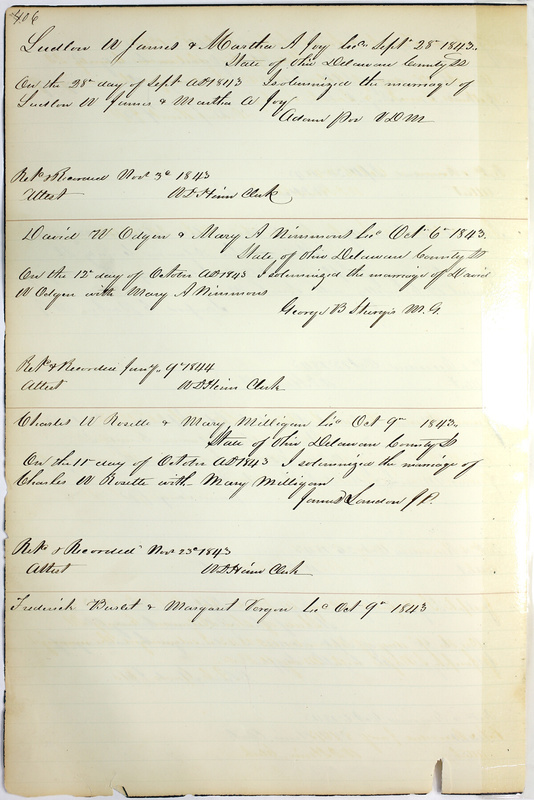 406
Ludlow W James & Martha A Joy Lic Sept 28 1843.
State of Ohio Delaware County SS
On the 28 day of Sept AD 1843 I solemnized the marriage of
Ludlow W James & Martha A Joy
Adam Poe V.D.M
Retd & Recorded Novr 3d 1843
Attest W D Heim Clerk
David W Odgen & Mary A Nimmons Lic Oct 6 1843.
State of Ohio Delaware County SS
On the 12 day of October AD 1843 I solemnized the marriage of David
W Odgen with Mary A Nimmons
George B Sturgis M.G.
Retd & Recorded Jany 9 1844
Attest W D Heim Clerk
Charles W Rosette & Mary Milligan Lic Oct 9 1843.
State of Ohio Delaware County SS
On the day of October AD 1843 I solemnized the marriage of
Charles W Rosette with Mary Milligan
James Landon J.P.
Retd & Recorded Novr 23d 1843
Attest W D Heim Clerk
Frederick & Margaret Lic Oct 9 1843